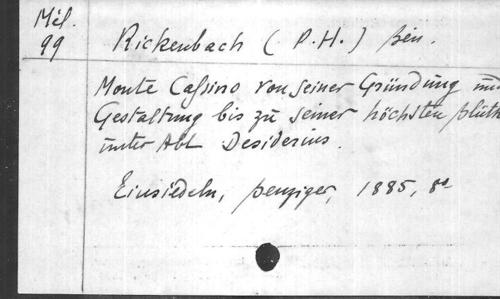 Mél.
99
Rickenbach (P. H.) ben.
Monte Cassino von seiner Gründung und
Gestaltung bis zu seiner höchsten blüthe
unter Abt Desiderius.
Einsiedeln, benziger, 1885, 8º